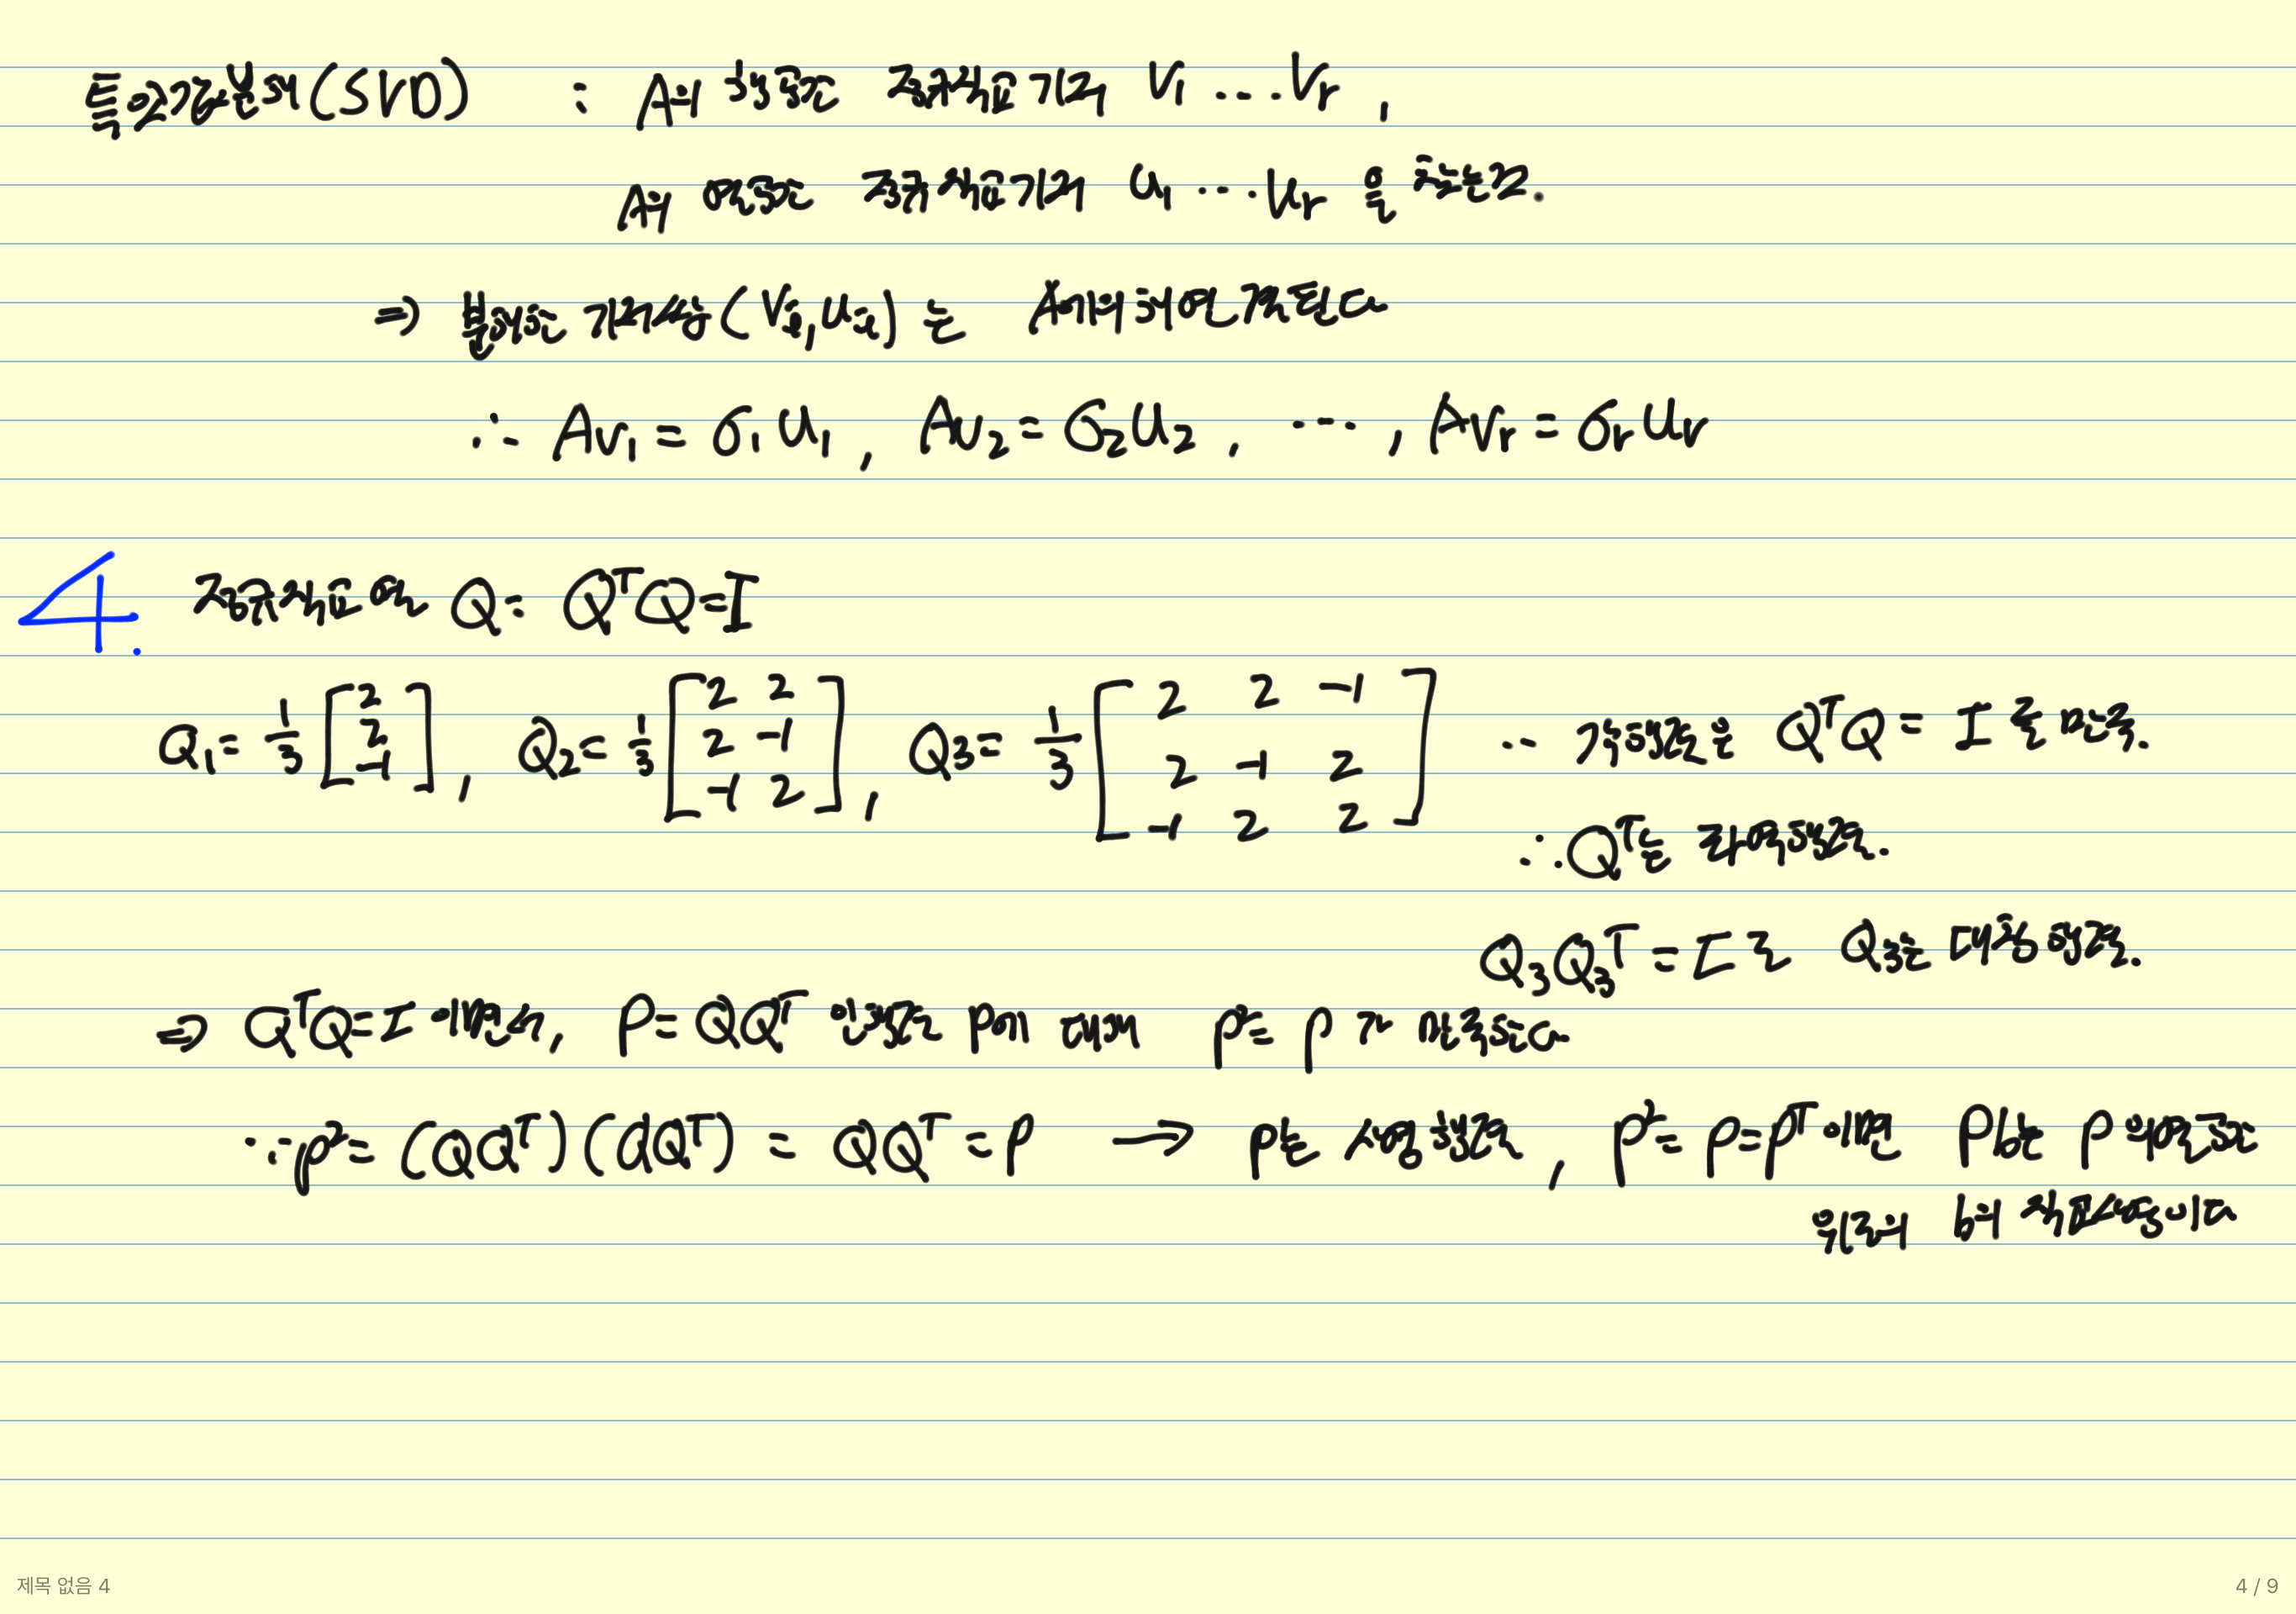 특잇값분해(SVD) : A의 행공간 정규직교 기저 V₁ ... Vr ,
A의 열공간 정규직교기저 U₁ ... Ur 을 찾는것.
⇒ 분해한 기저쌍(Vᵢ,Uᵢ) 는 A에의해 연관된다
∴ Av₁ = σ₁U₁ , Av₂ = σ₂U₂ , ... , Avr = σrUr
4. 정규직교 열 Q: QᵀQ=I
Q₁ = 1/3 [2; 2; -1] , Q₂ = 1/3 [2 2; 2 -1; -1 2] , Q₃ = 1/3 [2 2 -1; 2 -1 2; -1 2 2] ∵ 각행렬은 QᵀQ = I 를 만족.
∴ Qᵀ는 좌역행렬.
Q₃Q₃ᵀ = I 로 Q₃는 대칭 행렬.
⇒ QᵀQ=I 이면서, P=QQᵀ 인행렬 P에 대해 P²= P 가 만족한다
∵ P²= (QQᵀ)(QQᵀ) = QQᵀ = P → P는 사영 행렬 , P²= P=Pᵀ 이면 Pb는 P의열공간
위로의 b의 직교사영이다
제목 없음 4
4 / 9